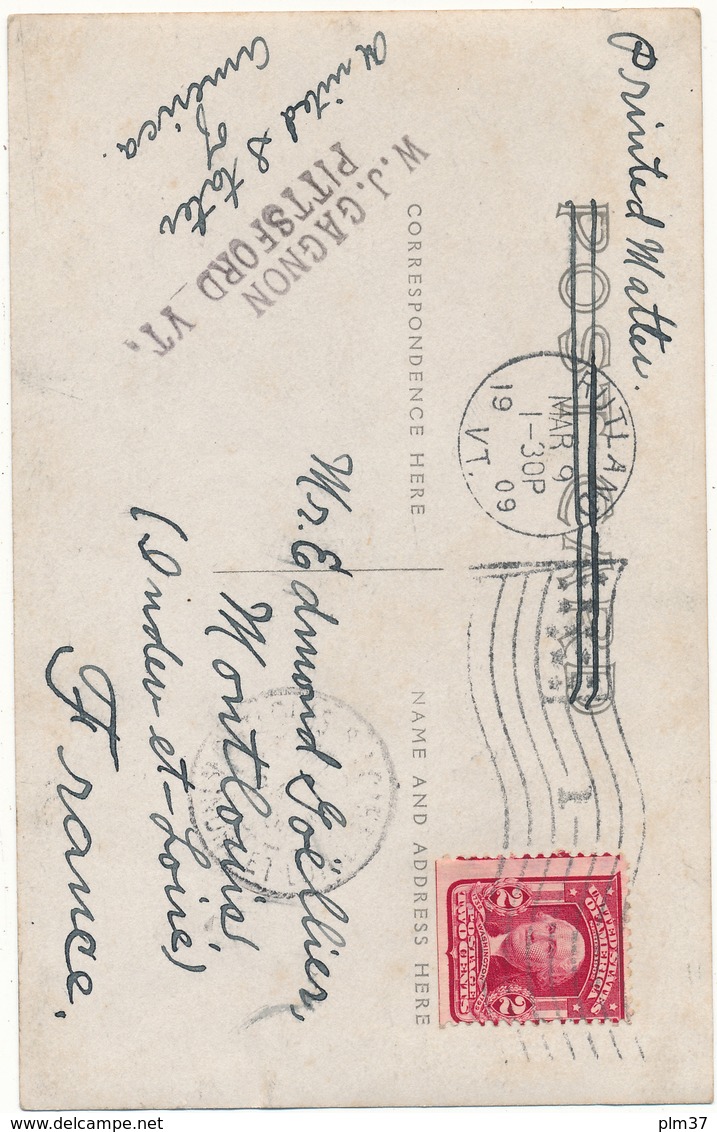 Printed Matter.
POST CARD
CORRESPONDENCE HERE
NAME AND ADDRESS HERE
RUTLAND
MAR 9
1-30P
19 09
VT.
1
UNITED STATES
OF AMERICA
WASHINGTON
POSTAGE
2 2
TWO CENTS
W.J. GAGNON
PITTSFORD VT.
United States
of
America.
Mr. Edmond Goëllier,
Montlouis
(Indre et-Loire)
France.
delcampe.net
plm37